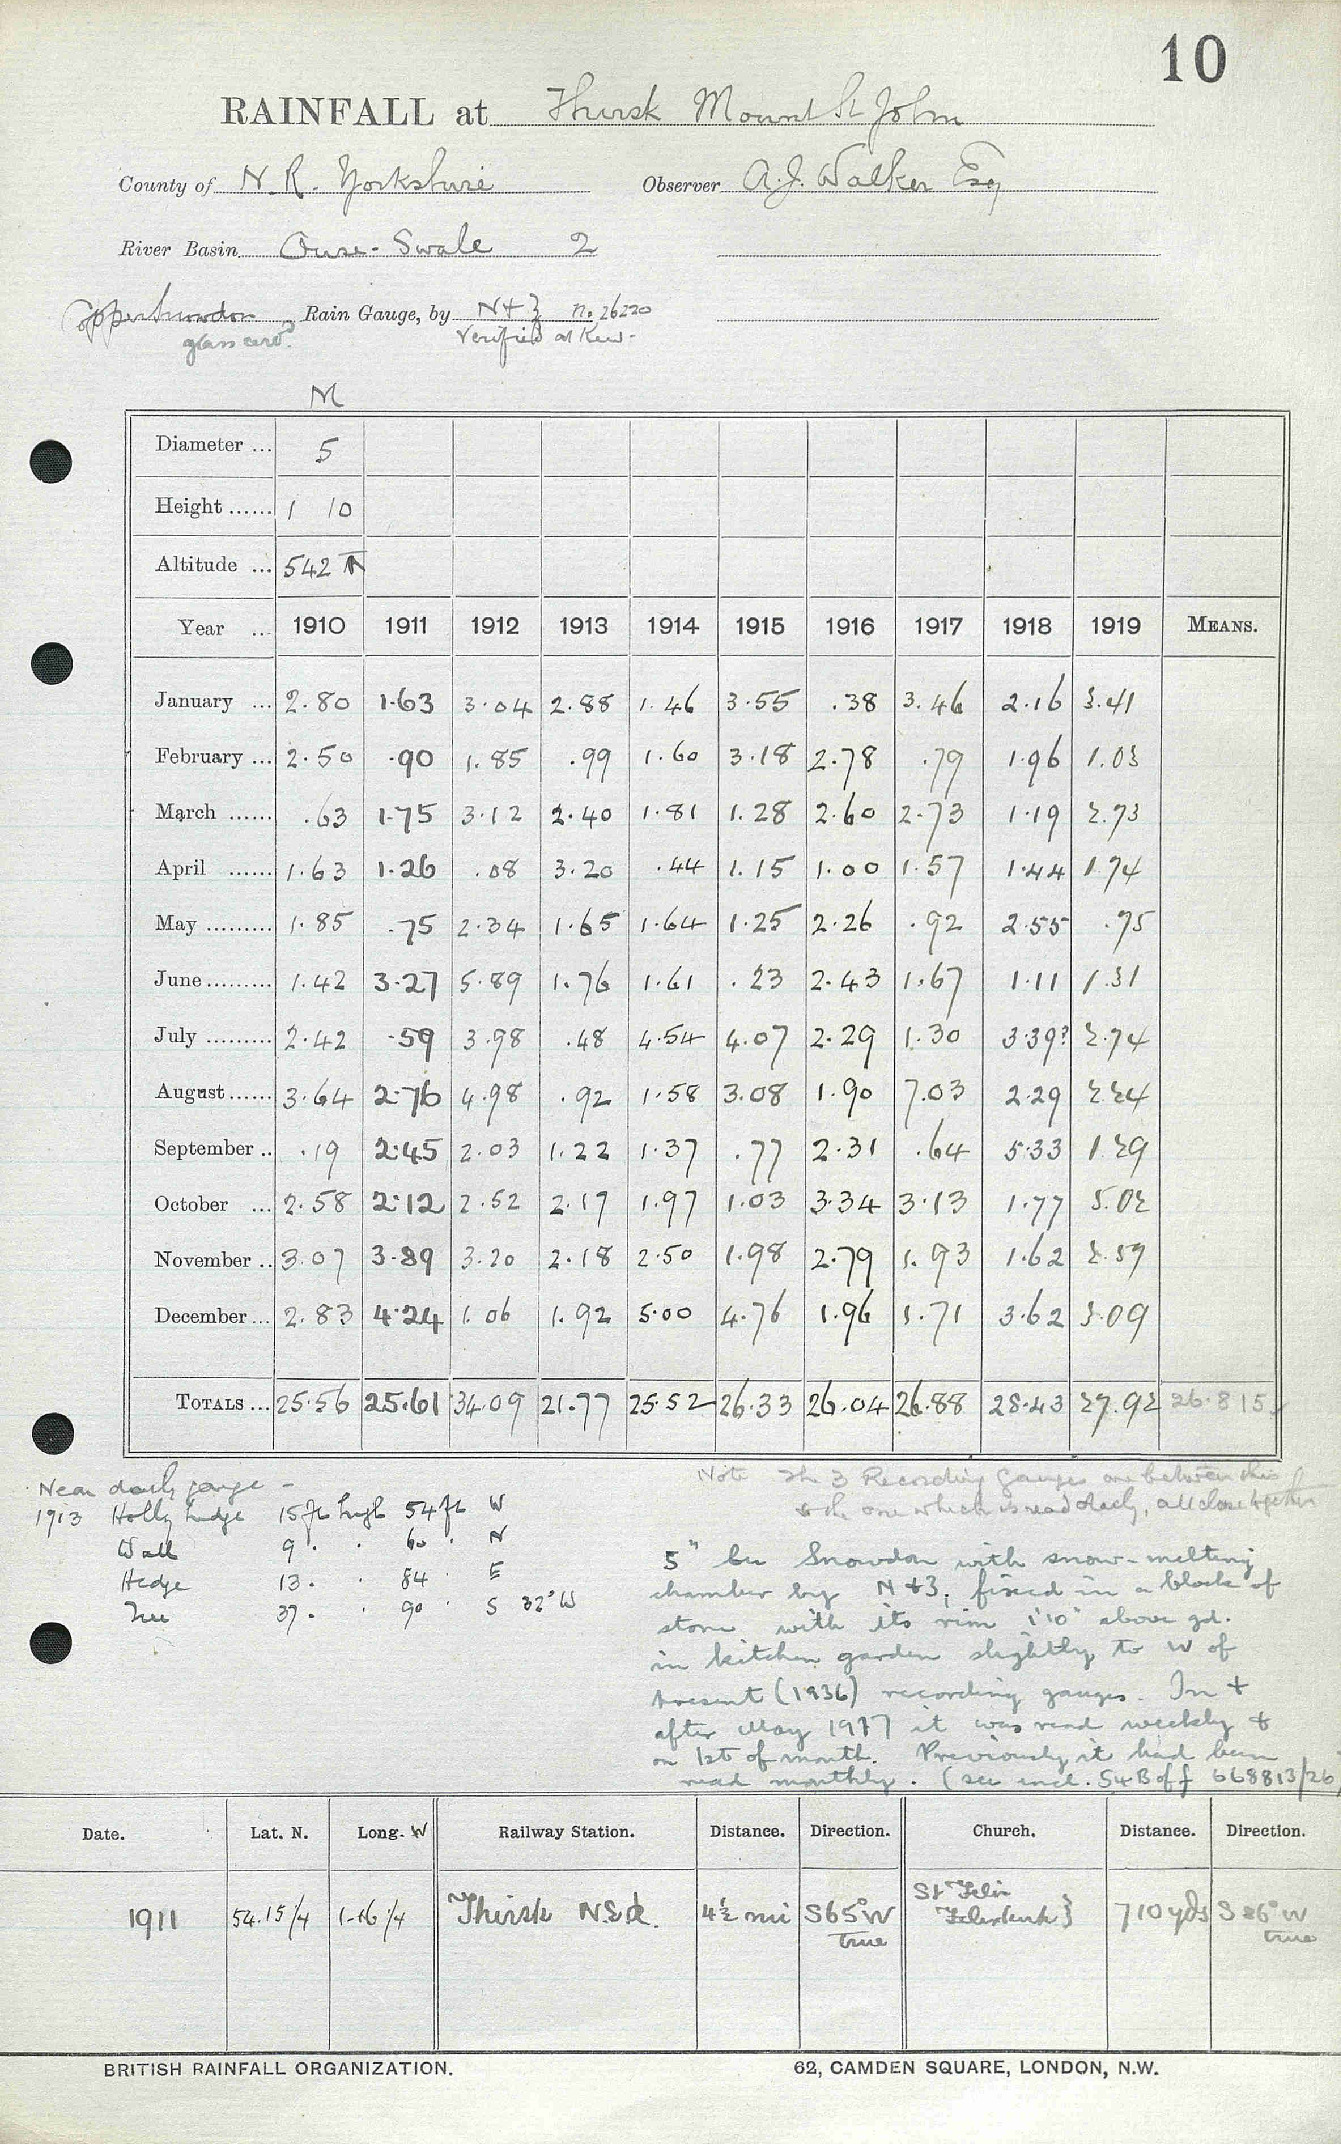 10
RAINFALL at Thirsk Mount St John
County of N. R. Yorkshire Observer A. J. Walker Esq
River Basin Ouse - Swale 2
Copper Snowdon Rain Gauge, by N + Z no. 26220
glass Verified at Kew.
M
Diameter ... 5
Height ...... 1 10
Altitude ... 542
Year ... 1910 1911 1912 1913 1914 1915 1916 1917 1918 1919 MEANS.
January ... 2.80 1.63 3.04 2.88 1.46 3.55 .38 3.46 2.16 3.41
February ... 2.50 .90 1.85 .99 1.60 3.18 2.78 .79 1.96 1.03
March ...... .63 1.75 3.12 2.40 1.81 1.28 2.60 2.73 1.19 2.73
April ...... 1.63 1.26 .08 3.20 .44 1.15 1.00 1.57 1.44 1.74
May ......... 1.85 .75 2.34 1.65 1.64 1.25 2.26 .92 2.55 .75
June ......... 1.42 3.27 5.89 1.76 1.61 .23 2.43 1.67 1.11 1.31
July ......... 2.42 .59 3.98 .48 4.54 4.07 2.29 1.30 3.39? 2.74
August ...... 3.64 2.76 4.98 .92 1.58 3.08 1.90 7.03 2.29 2.24
September .. .19 2.45 2.03 1.22 1.37 .77 2.31 .64 5.33 1.29
October ... 2.58 2.12 2.52 2.17 1.97 1.03 3.34 3.13 1.77 5.02
November .. 3.07 3.89 3.20 2.18 2.50 1.98 2.79 1.93 1.62 2.57
December ... 2.83 4.24 1.06 1.92 5.00 4.76 1.96 1.71 3.62 3.09
TOTALS ... 25.56 25.61 34.09 21.77 25.52 26.33 26.04 26.88 28.43 27.92 26.815
Near daily gauge -
1913 Holly hedge 15 ft high 54 ft W
Wall 9 . . 60 . N
Hedge 13 . . 84 . E
Tree 37 . . 90 . S 32° W
Note The 3 Recording Gauges are between this
& the one which is read daily, all close together
5" Snowdon with snow-melting
chamber by N + Z, fixed in a block of
stone with its rim 1'10" above gd.
in kitchen garden slightly to W of
present (1936) recording gauges. In +
after May 1917 it was read weekly &
on 1st of month. Previously it had been
read monthly. (see encl. 54B off 668813/26
Date. Lat. N. Long. W Railway Station. Distance. Direction. Church. Distance. Direction.
1911 54.15 1/4 1.16 1/4 Thirsk N.E.R. 4½ mi S 65° W true St Felix Feliskirk } 710 yds S 26° W true
BRITISH RAINFALL ORGANIZATION. 62, CAMDEN SQUARE, LONDON, N.W.